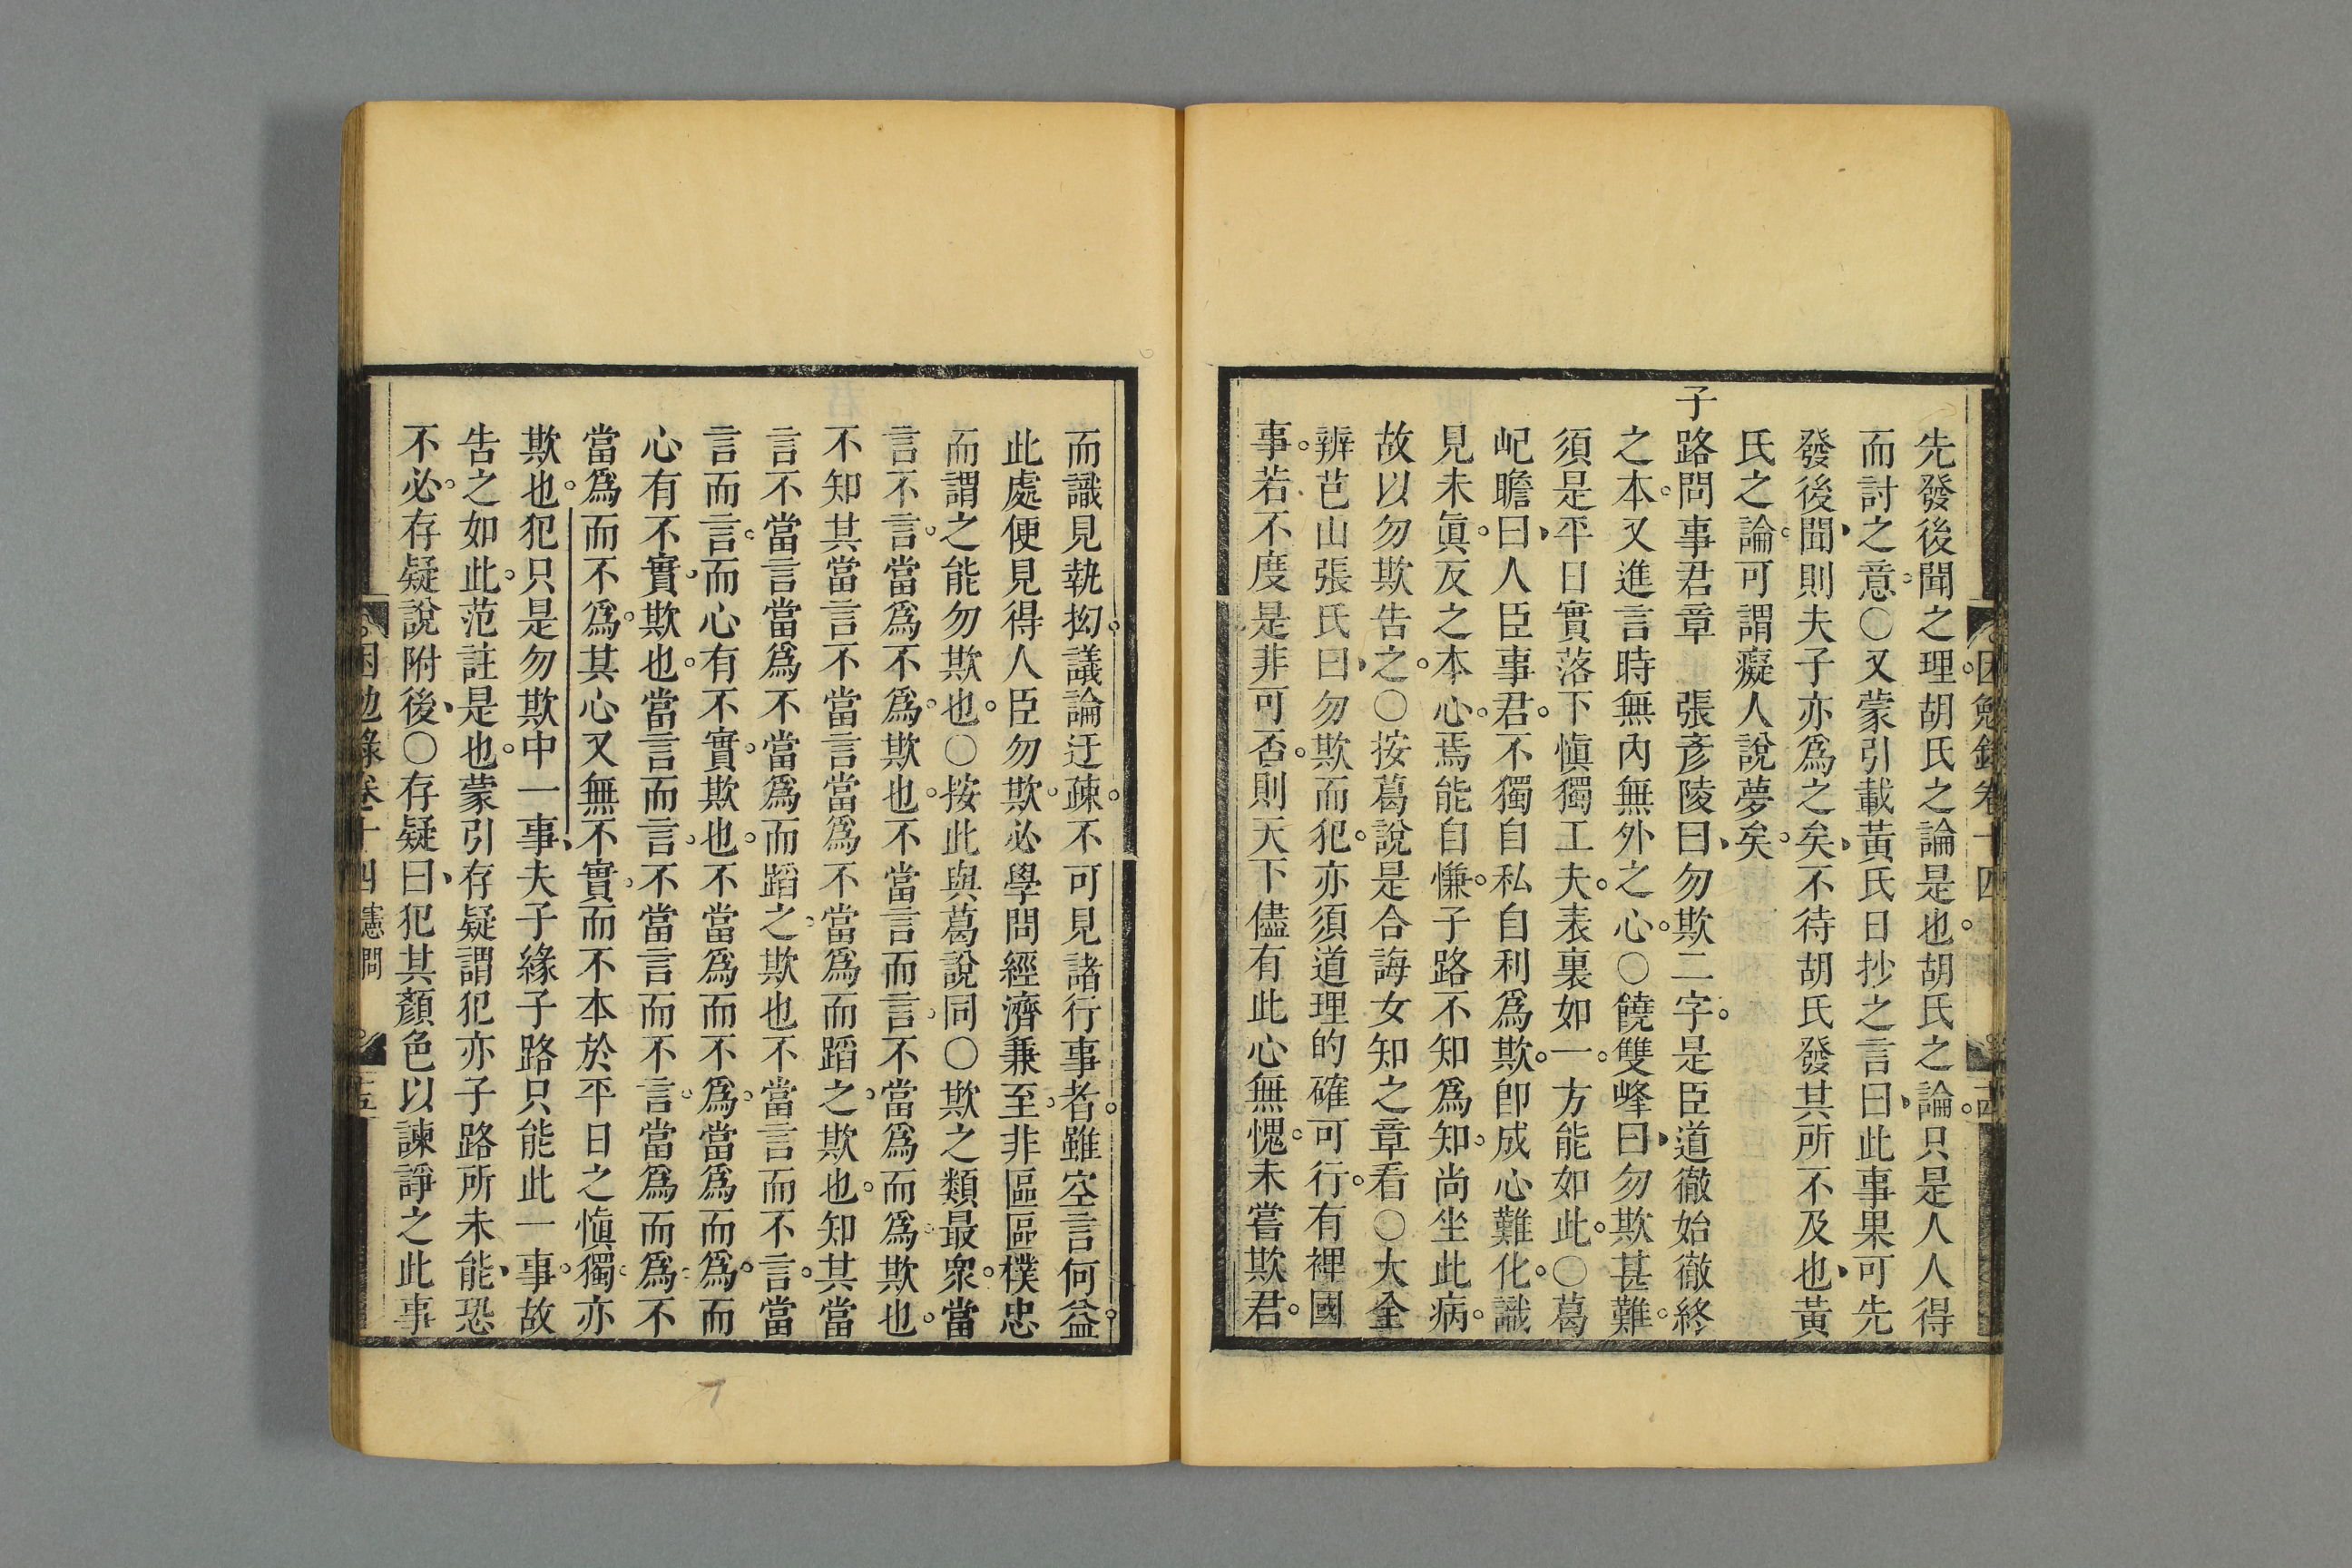 困勉錄卷十四
先發後聞之理胡氏之論是也胡氏之論只是人人得
而討之意〇又蒙引載黃氏日抄之言曰此事果可先
發後聞則夫子亦爲之矣不待胡氏發其所不及也黃
氏之論可謂癡人說夢矣
子路問事君章　張彥陵曰勿欺二字是臣道徹始徹終
之本又進言時無內無外之心〇饒雙峰曰勿欺甚難
須是平日實落下愼獨工夫表裏如一方能如此〇葛
屺瞻曰人臣事君不獨自私自利爲欺卽成心難化識
見未眞反之本心焉能自慊子路不知爲知尚坐此病
故以勿欺告之〇按葛說是合誨女知之章看〇大全
辨芑山張氏曰勿欺而犯亦須道理的確可行有裨國
事若不度是非可否則天下儘有此心無愧未嘗欺君
而識見執拗議論迂疎不可見諸行事者雖空言何益
此處便見得人臣勿欺必學問經濟兼至非區區樸忠
而謂之能勿欺也〇按此與葛說同〇欺之類最衆當
言不言當爲不爲欺也不當言而言不當爲而爲欺也
不知其當言不當言當爲不當爲而蹈之欺也知其當
言不當言當爲不當爲而蹈之欺也不當言而不言當
言而言而心有不實欺也不當爲而不爲當爲而爲而
心有不實欺也當言而言不當言而不言當爲而爲不
當爲而不爲其心又無不實而不本於平日之愼獨亦
欺也犯只是勿欺中一事夫子緣子路只能此一事故
告之如此范註是也蒙引存疑謂犯亦子路所未能恐
不必存疑說附後〇存疑曰犯其顏色以諫諍之此事
困勉錄卷十四　憲問　十五